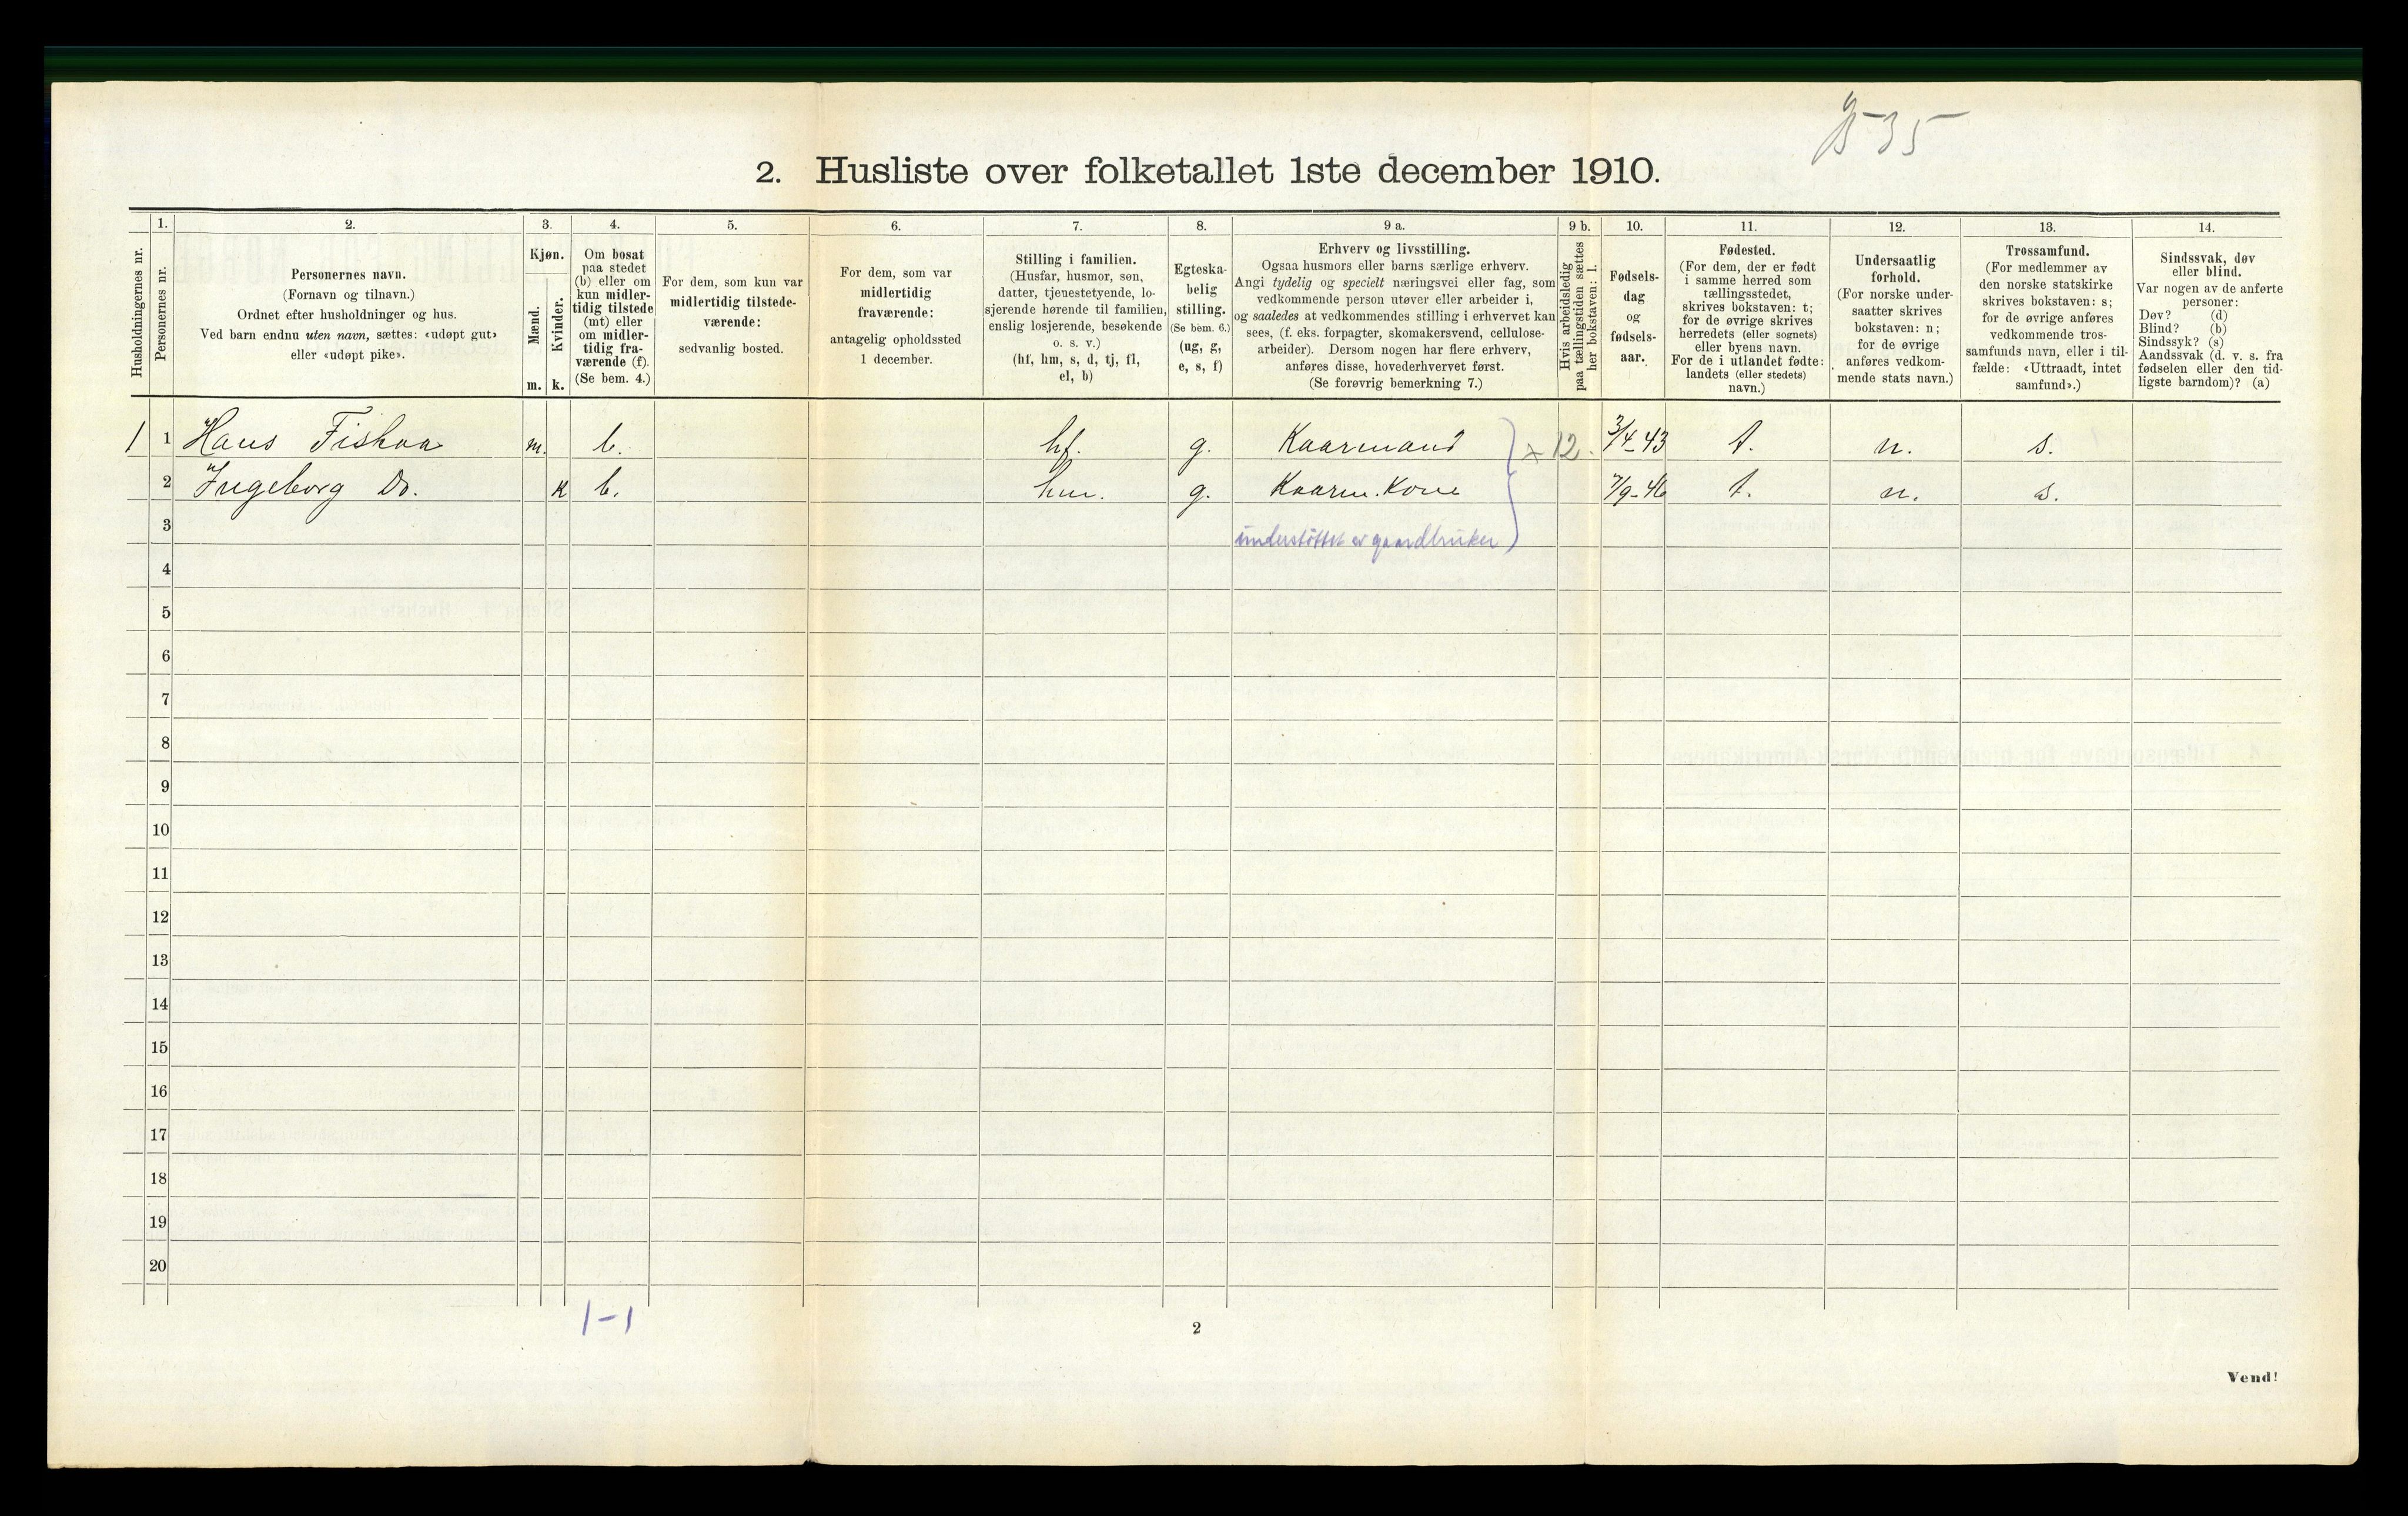 2. Husliste over folketallet 1ste december 1910.
Husholdningernes nr.
1.
Personernes nr.
2.
Personernes navn.
(Fornavn og tilnavn.)
Ordnet efter husholdninger og hus.
Ved barn endnu uten navn, sættes: «udøpt gut»
eller «udøpt pike».
3.
Kjøn.
Mænd.
Kvinder.
m. k.
4.
Om bosat
paa stedet
(b) eller om
kun midler-
tidig tilstede
(mt) eller
om midler-
tidig fra-
værende (f).
(Se bem. 4.)
5.
For dem, som kun var
midlertidig tilstede-
værende:
sedvanlig bosted.
6.
For dem, som var
midlertidig
fraværende:
antagelig opholdssted
1 december.
7.
Stilling i familien.
(Husfar, husmor, søn,
datter, tjenestetyende, lo-
sjerende hørende til familien,
enslig losjerende, besøkende
o. s. v.)
(hf, hm, s, d, tj, fl,
el, b)
8.
Egteska-
belig
stilling.
(Se bem. 6.)
(ug, g,
e, s, f)
9 a.
Erhverv og livsstilling.
Ogsaa husmors eller barns særlige erhverv.
Angi tydelig og specielt næringsvei eller fag, som
vedkommende person utøver eller arbeider i,
og saaledes at vedkommendes stilling i erhvervet kan
sees, (f. eks. forpagter, skomakersvend, cellulose-
arbeider). Dersom nogen har flere erhverv,
anføres disse, hovederhvervet først.
(Se forøvrig bemerkning 7.)
9 b.
Hvis arbeidsledig
paa tællingstiden sættes
her bokstaven: l.
10.
Fødsels-
dag
og
fødsels-
aar.
11.
Fødested.
(For dem, der er født
i samme herred som
tællingsstedet,
skrives bokstaven: t;
for de øvrige skrives
herredets (eller sognets)
eller byens navn.
For de i utlandet fødte:
landets (eller stedets)
navn.)
12.
Undersaatlig
forhold.
(For norske under-
saatter skrives
bokstaven: n;
for de øvrige
anføres vedkom-
mende stats navn.)
13.
Trossamfund.
(For medlemmer av
den norske statskirke
skrives bokstaven: s;
for de øvrige anføres
vedkommende tros-
samfunds navn, eller i til-
fælde: «Uttraadt, intet
samfund».)
14.
Sindssvak, døv
eller blind.
Var nogen av de anførte
personer:
Døv? (d)
Blind? (b)
Sindssyk? (s)
Aandssvak (d. v. s. fra
fødselen eller den tid-
ligste barndom)? (a)
1 1 Hans Fiskaa m. b. hf. g. Kaarmand x 12. 3/4-43 t. n. s.
2 Ingeborg Do. k b. hm. g. Kaarm. Kone 7/9-46 t. n. s.
3 understöttet av gaardbruker
4
5
6
7
8
9
10
11
12
13
14
15
16
17
18
19
20
1-1
2
Vend!